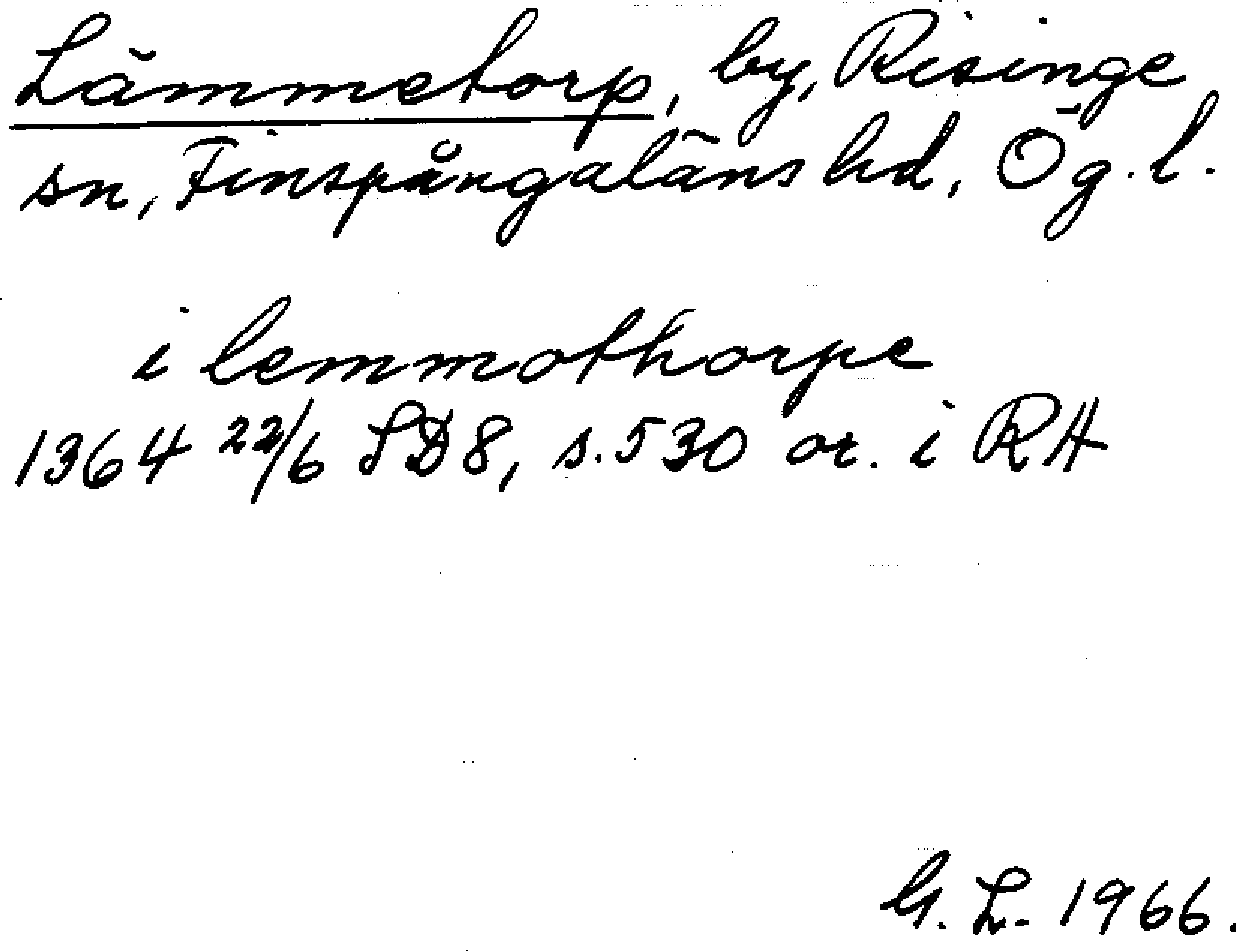 Lämmetorp, by, Risinge
sn, Finspångaläns hd, Ög. l.
i lemmothorpe
1364 22/6 SD8, s. 530 or. i RA
G. L. 1966.